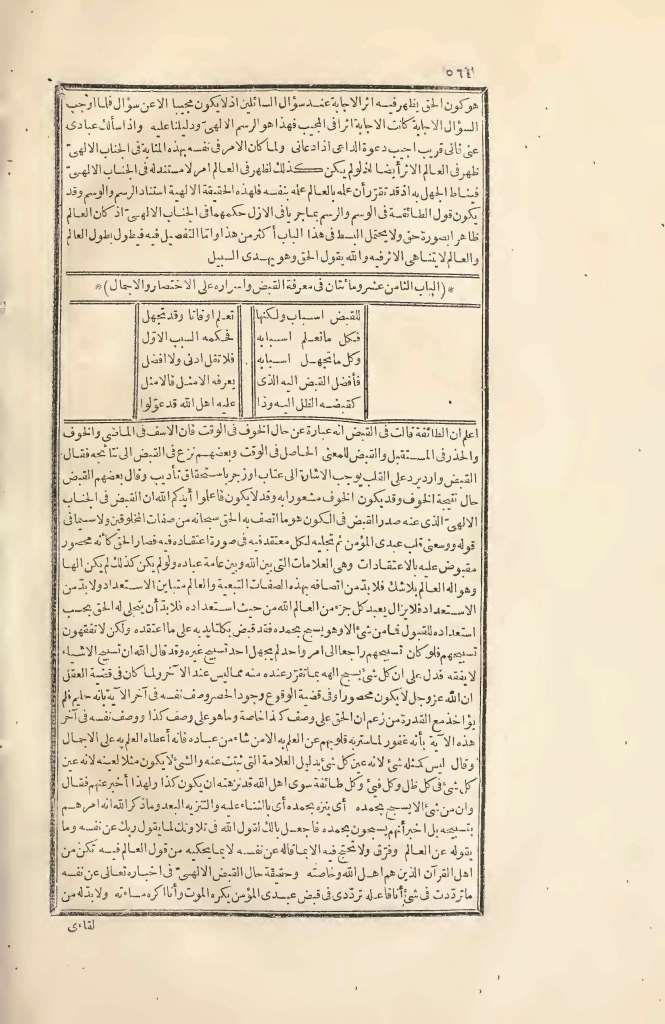 ٥٦٤
هو كون الحق يظهر فيه اثر الاجابة عند سؤال السائلين اذ لا يكون مجيبا الا عن سؤال فلما اوجب
السؤال الاجابة كانت الاجابة اثرا فى المجيب فهذا هو الرسم الالهى ودليلنا عليه واذا سألك عبادى
عنى فانى قريب اجيب دعوة الداعى اذا دعانى ولما كان الامر فى نفسه بهذه المثابة فى الجناب الالهى
ظهر فى العالم الاثر أيضا اذ لو لم يكن كذلك لظهر فى العالم امر لا مستند له فى الجناب الالهى
فيناط الجهل به اذ قد تقرّر أن علمه بالعالم علمه بنفسه فلهذه الحقيقة الالهية استناد الرسم والوسم وقد
يكون قول الطائفة فى الوسم والرسم بما جريا فى الازل حكمهما فى الجناب الالهى اذ كان العالم
ظاهرا بصورة حق ولا يحتمل البسط فى هذا الباب أكثر من هذا وامّا التفصيل فيه فيطول بطول العالم
والعالم لا يتناهى الاثر فيه والله يقول الحق وهو يهدى السبيل
*(الباب الثامن عشر ومائتان فى معرفة القبض واسراره على الاختصار والاجمال)*
للقبض اسباب ولكنها تعلم اوقاتا وقد تجهل
فكل ما تعلم اسبابه فحكمه السبب الاوّل
وكل ما تجهل اسبابه فلا تقل ادنى ولا افضل
فأفضل القبض اليه الذى يعرفه الامثل فالامثل
كقبضه الظل اليه وذا عليه اهل الله قد عوّلوا
اعلم ان الطائفة قالت فى القبض انه عبارة عن حال الخوف فى الوقت فان الاسف فى الماضى والخوف
والحذر فى المستقبل والقبض للمعنى الحاصل فى الوقت وبعضهم نزع فى القبض الى نتائجه فقال
القبض وارد يرد على القلب يوجب الاشارة الى عتاب او زجر باستحقاق تأديب وقال بعضهم القبض
حال نتيجة الخوف وقد يكون الخوف مشعورا به وقد لا يكون فاعلوا أيدكم الله ان القبض فى الجناب
الالهى الذى عنه صدر القبض فى الكون هو ما اتصف به الحق سبحانه من صفات المخلوقين ولا سيما فى
قوله ووسعنى قلب عبدى المؤمن ثم تجليه لكل معتقد فيه فى صورة اعتقاده فيه فصار الحق كأنه محصور
مقبوض عليه بالاعتقادات وهى العلامات التى بين الله وبين عامة عباده ولو لم يكن كذلك لم يكن الها
وهو اله العالم بلا شك فلا بدّ من اتصافه بهذه الصفات التبعية والعالم متباين الاستعداد ولا بدّ من
الاستعداد فلا يزال يعبد كل جزء من العالم الله من حيث استعداده فلا بدّ أن يتجلى له الحق بحسب
استعداده للقبول فما من شئ الا وهو يسبح بحمده فقد قبض بكلتا يديه على ما اعتقده ولكن لا تفقهون
تسبيحهم فلو كان تسبيحهم راجعا الى امر واحد لم يجهل احد تسبيح غيره وقد قال الله ان تسبيح الاشياء
لا يفقه فدل على ان كل شئ يسبح الهه بما تقرّر عنده منه مما ليس عند الآخر ولما كان فى قضية العقل
ان الله عز وجل لا يكون محصورا وفى قضية الوقوع وجود الحصر وصف نفسه فى آخر الآية بأنه حليم فلم
يؤاخذ مع القدرة من زعم ان الحق على وصف كذا خاصة وما هو على وصف كذا ووصف نفسه فى آخر
هذه الآية بأنه غفور لما ستر به قلوبهم عن العلم به الا من شاء من عباده فانه أعطاه العلم به على الاجمال
وقال ليس كمثله شئ لانه عين كل شئ بدليل العلامة التى ثبتت عنه والشئ لا يكون مثلا لعينه لانه عين
كل شئ فى كل ظل وكل فيئ وكل طائفة سوى اهل الله قد نزهته ان يكون كذا ولهذا أخبر عنهم فقال
وان من شئ الا يسبح بحمده أى ينزه بحمده أى بالثناء عليه والتنزيه البعد وما ذكر الله انه امرهم
بتسبيحه بل اخبر أنهم يسبحون بحمده فاجعل بالك لقول الله فى تلاوتك لما يقول ربك عن نفسه وما
يقوله عن العالم وفرّق ولا تحتج فيه الا بما قاله عن نفسه لا بما يحكيه من قول العالم فيه تكن من
اهل القرآن الذين هم اهل الله وخاصته وحقيقة حال القبض الالهى فى اخباره تعالى عن نفسه
ما تردّدت فى شئ أنا فاعله تردّدى فى قبض عبدى المؤمن يكره الموت وأنا اكره مساءته ولا بدّ له من
لقاءى